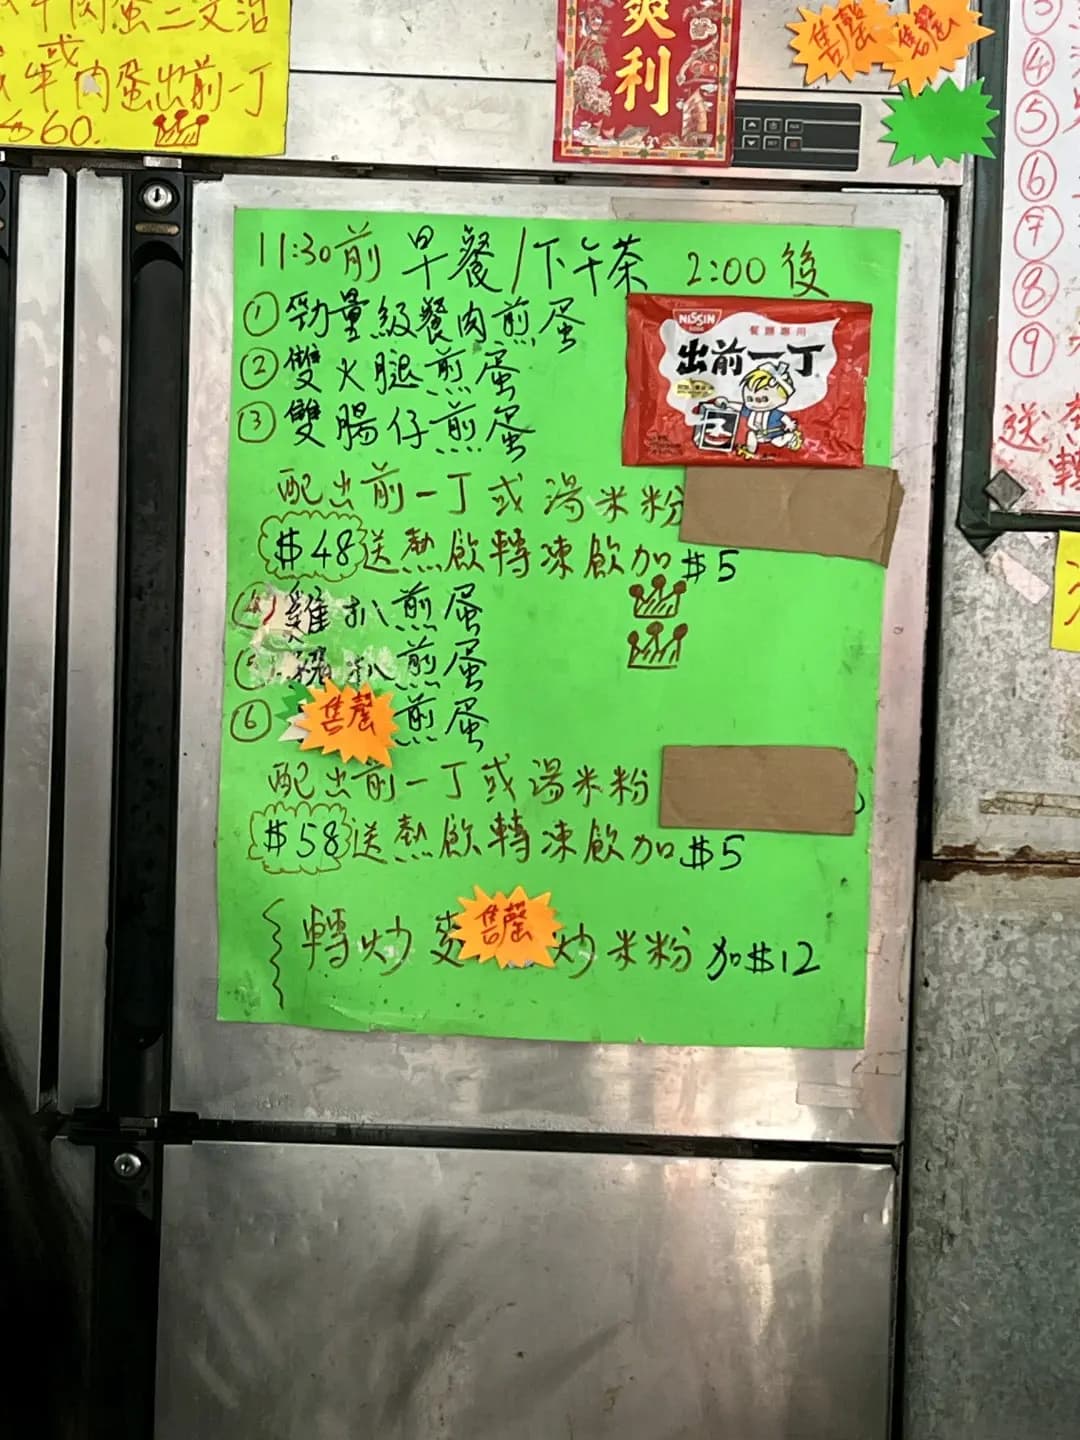 牛肉蛋三文治
或
牛肉蛋出前一丁
$60.
爽
利
售罄
售罄
11:30前 早餐/下午茶 2:00後
① 勁量級餐肉煎蛋
② 雙火腿煎蛋
③ 雙腸仔煎蛋
NISSIN
餐廳專用
出前一丁
配出前一丁或湯米粉
$48送熱飲轉凍飲加$5
④ 雞扒煎蛋
⑤ 豬扒煎蛋
⑥ 售罄 煎蛋
配出前一丁或湯米粉
$58送熱飲轉凍飲加$5
轉炒 售罄 炒米粉加$12
③
④
⑤
⑥
⑦
⑧
⑨
送
轉